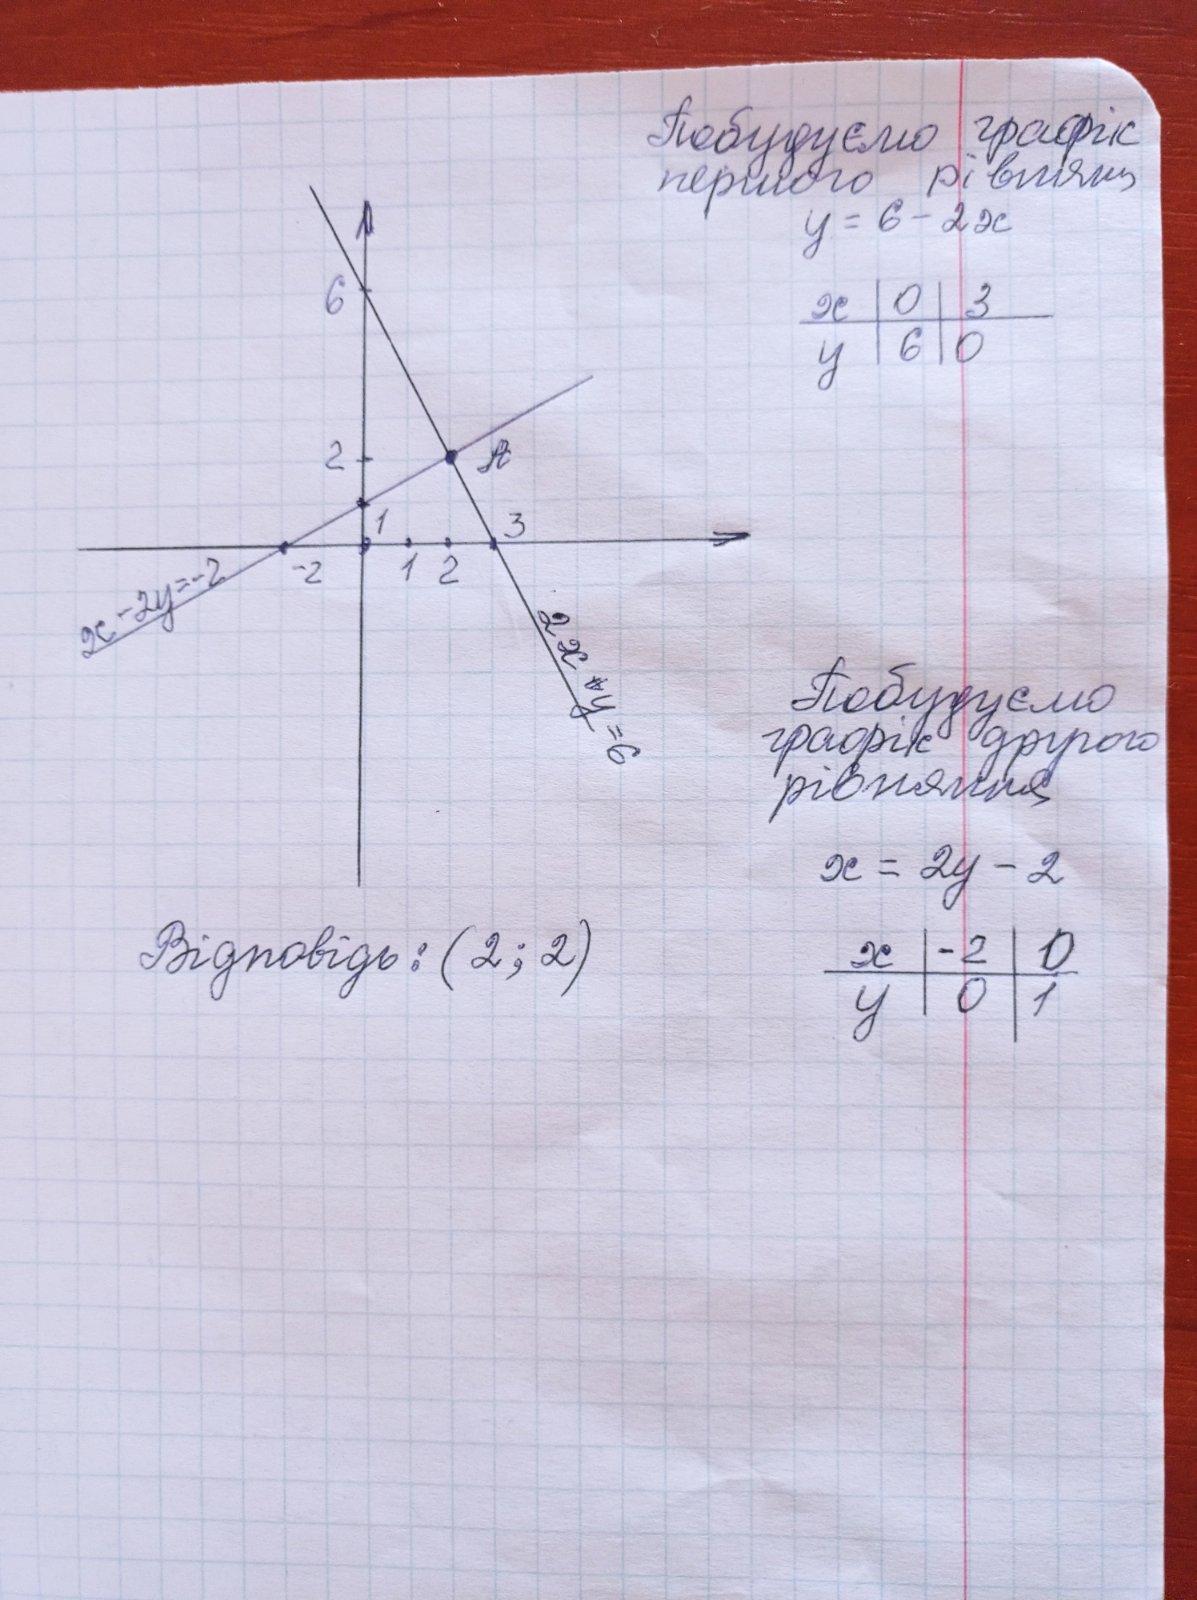 Побудуємо графік
першого рівнянн
y = 6 - 2x
x | 0 | 3
y | 6 | 0
6
2
A
1
3
-2
1
2
x - 2y = -2
2x + y = 6
Побудуємо
графік другого
рівняння
x = 2y - 2
x | -2 | 0
y | 0 | 1
Відповідь: (2; 2)